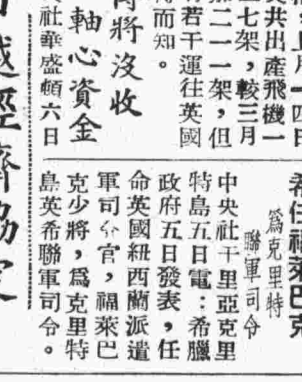 共出產飛機一
七架，較三月
二一一架，但
若干運往英國
而知。
將沒收
軸心資金
社華盛頓六日
越經濟協定
希任福萊巴克
為克里特
聯軍司令
中央社干里亞克里
特島五日電：希臘
政府五日發表，任
命英國紐西蘭派遣
軍司令官，福萊巴
克少將，為克里特
島英希聯軍司令。